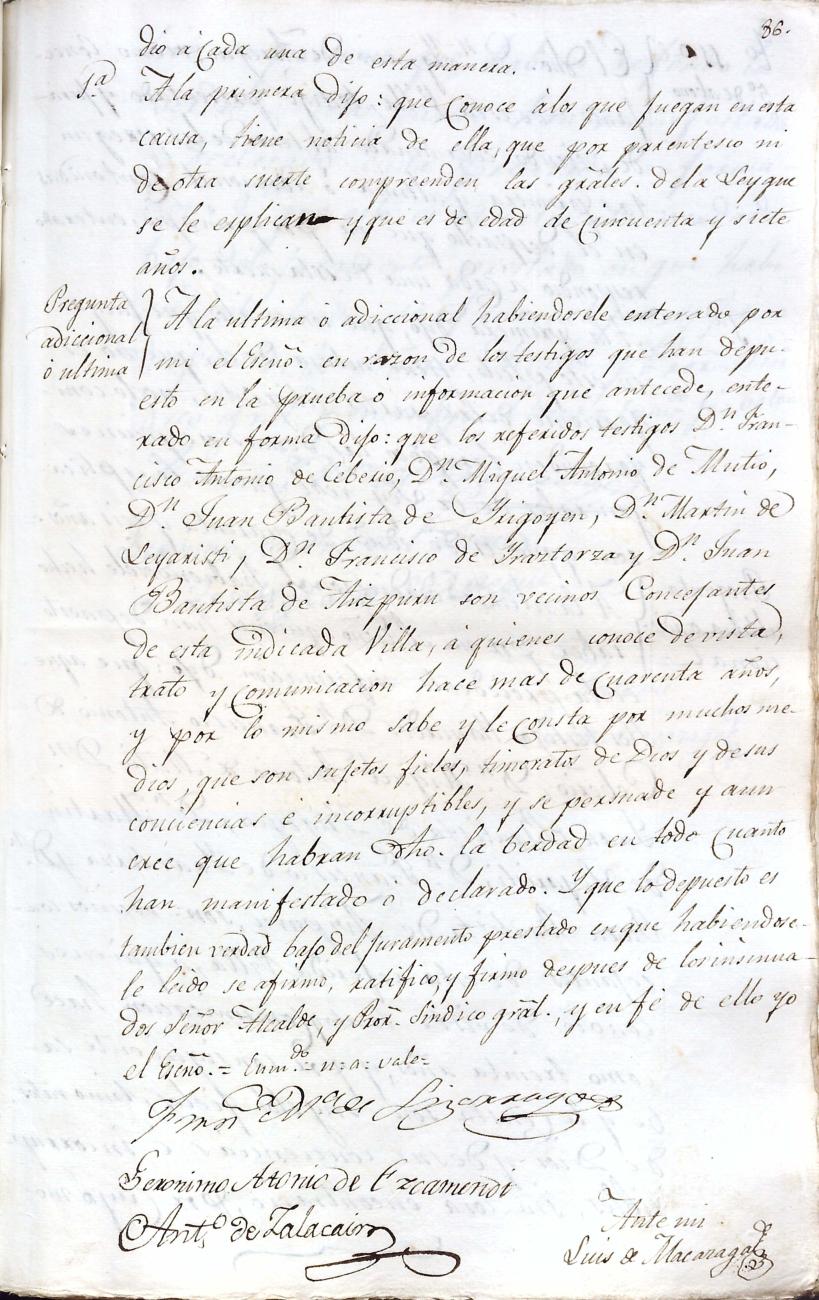 86.
dio à Cada una de esta manera.
1ª A la primera dijo: que Conoce à los que juegan en esta
causa, tiene noticia de ella, que por parentesco ni
de otra suerte compreenden las grâles. de la Ley que
se le esplican y que es de edad de Cincuenta y siete
años.
Pregunta
adiccional
ò ultima
A la ultima ò adiccional habiendosele enterado por
mi el Escnô. en razon de los testigos que han depu-
esto en la prueba ò informacion que antecede, ente-
rado en forma dijo: que los referidos testigos Dn. Fran-
cisco Antonio de Ceberio, Dn. Miguel Antonio de Mutio,
Dn. Juan Bautista de Yrigoyen, Dn. Martin de
Leyaristi, Dn. Francisco de Yraztorza y Dn. Juan
Bautista de Aizpuru son vecinos Concejantes
de esta indicada Villa, à quienes conoce de vista,
trato y Comunicacion hace mas de Cuarenta años,
y por lo mismo sabe y le Consta por muchos me-
dios, que son sujetos fieles, timoratos de Dios y de sus
conciencias è incorruptibles, y se persuade y aun
cree que habran dho. la berdad en todo Cuanto
han manifestado ò declarado. Y que lo depuesto es
tambien verdad bajo del juramento prestado en que habiendose-
le leido se afirmò, ratificò, y firmò despues de los insinua-
dos Señor Alcalde, y Prôr. Sindico grâl., y en fè de ello yo
el Escnô. = Enmdo. = n = a = vale =
Geronimo Atonio de Ezcamendi
Anto. de Zalacain
Ante mi
Luis de Macazaga